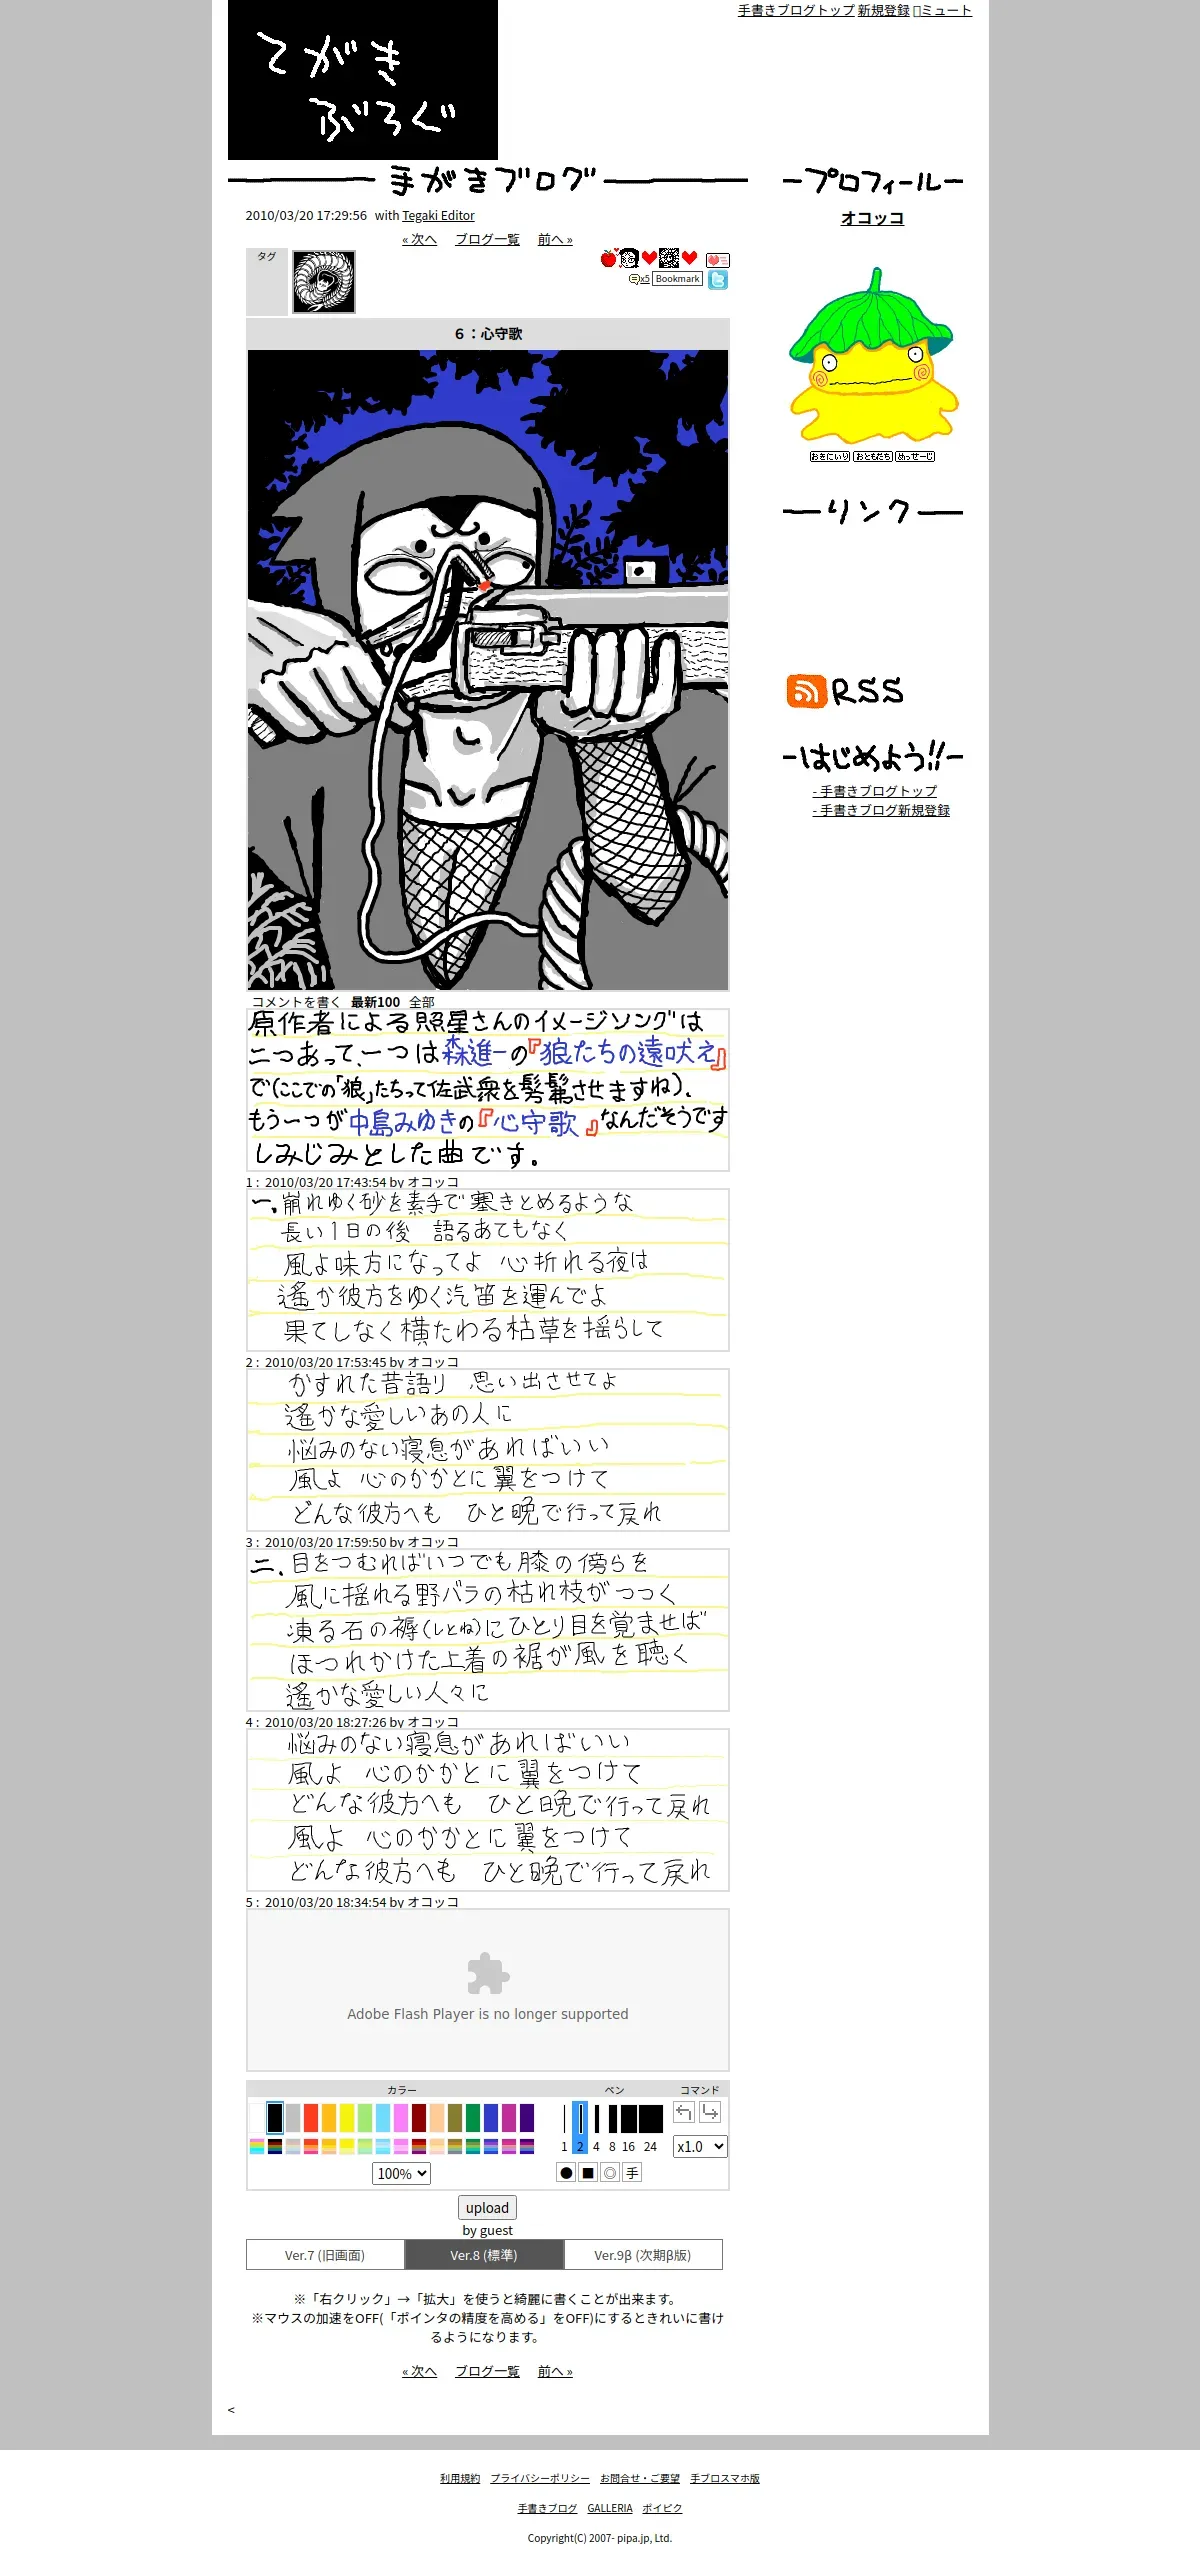 てがき
ぶろぐ
手書きブログトップ 新規登録 ミュート
手がきブログ
2010/03/20 17:29:56 with Tegaki Editor
« 次へ ブログ一覧 前へ »
タグ
x5 Bookmark
6:心守歌
コメントを書く 最新100 全部
原作者による照星さんのイメージソングは
二つあって、一つは森進一の『狼たちの遠吠え』
で(ここでの「狼」たちって佐武衆を髣髴させますね)、
もう一つが中島みゆきの『心守歌』なんだそうです
しみじみとした曲です。
1 : 2010/03/20 17:43:54 by オコッコ
一.崩れゆく砂を素手で塞きとめるような
長い1日の後 語るあてもなく
風よ味方になってよ 心折れる夜は
遙か彼方をゆく汽笛を運んでよ
果てしなく横たわる枯草を揺らして
2 : 2010/03/20 17:53:45 by オコッコ
かすれた昔語り 思い出させてよ
遙かな愛しいあの人に
悩みのない寝息があればいい
風よ 心のかかとに翼をつけて
どんな彼方へも ひと晩で行って戻れ
3 : 2010/03/20 17:59:50 by オコッコ
二.目をつむればいつでも膝の傍らを
風に揺れる野バラの枯れ枝がつつく
凍る石の褥(しとね)にひとり目を覚ませば
ほつれかけた上着の裾が風を聴く
遙かな愛しい人々に
4 : 2010/03/20 18:27:26 by オコッコ
悩みのない寝息があればいい
風よ 心のかかとに翼をつけて
どんな彼方へも ひと晩で行って戻れ
風よ 心のかかとに翼をつけて
どんな彼方へも ひと晩で行って戻れ
5 : 2010/03/20 18:34:54 by オコッコ
Adobe Flash Player is no longer supported
カラー ペン コマンド
1 2 4 8 16 24 x1.0
100% ● ■ ◎ 手
upload
by guest
Ver.7 (旧画面) Ver.8 (標準) Ver.9β (次期β版)
※「右クリック」→「拡大」を使うと綺麗に書くことが出来ます。
※マウスの加速をOFF(「ポインタの精度を高める」をOFF)にするときれいに書け
るようになります。
« 次へ ブログ一覧 前へ »
<
プロフィール
オコッコ
おきにいり おともだち めっせーじ
リンク
RSS
はじめよう!!
- 手書きブログトップ
- 手書きブログ新規登録
利用規約 プライバシーポリシー お問合せ・ご要望 手ブロスマホ版
手書きブログ GALLERIA ポイピク
Copyright(C) 2007- pipa.jp, Ltd.